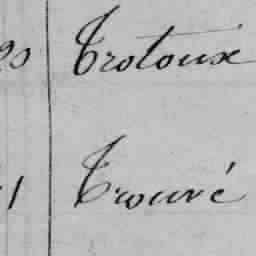 20 Trotoux
1 Trouvé